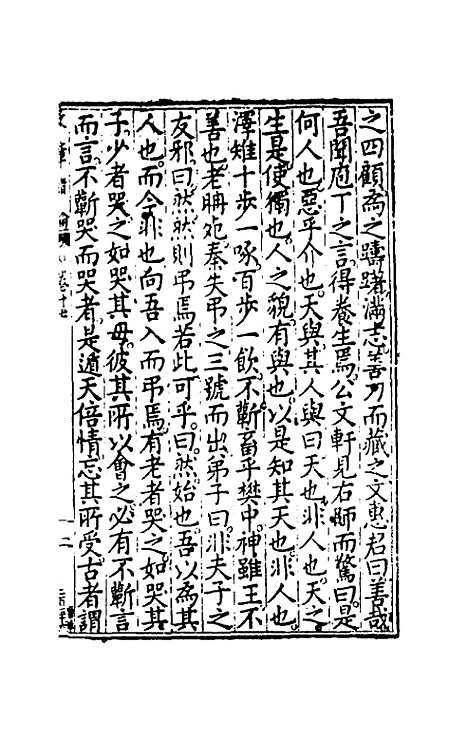 之四顧為之躊躇滿志善刀而藏之文惠君曰善哉
吾聞庖丁之言得養生焉公文軒見右師而驚曰是
何人也惡乎介也天與其人與曰天也非人也天之
生是使獨也人之貌有與也以是知其天也非人也
澤雉十歩一啄百歩一飲不蘄畜乎樊中神雖王不
善也老聃死秦失弔之三號而出弟子曰非夫子之
友邪曰然然則弔焉若此可乎曰然始也吾以為其
人也而今非也向吾入而弔焉有老者哭之如哭其
子少者哭之如哭其母彼其所以會之必有不蘄言
而言不蘄哭而哭者是遁天倍情忘其所受古者謂